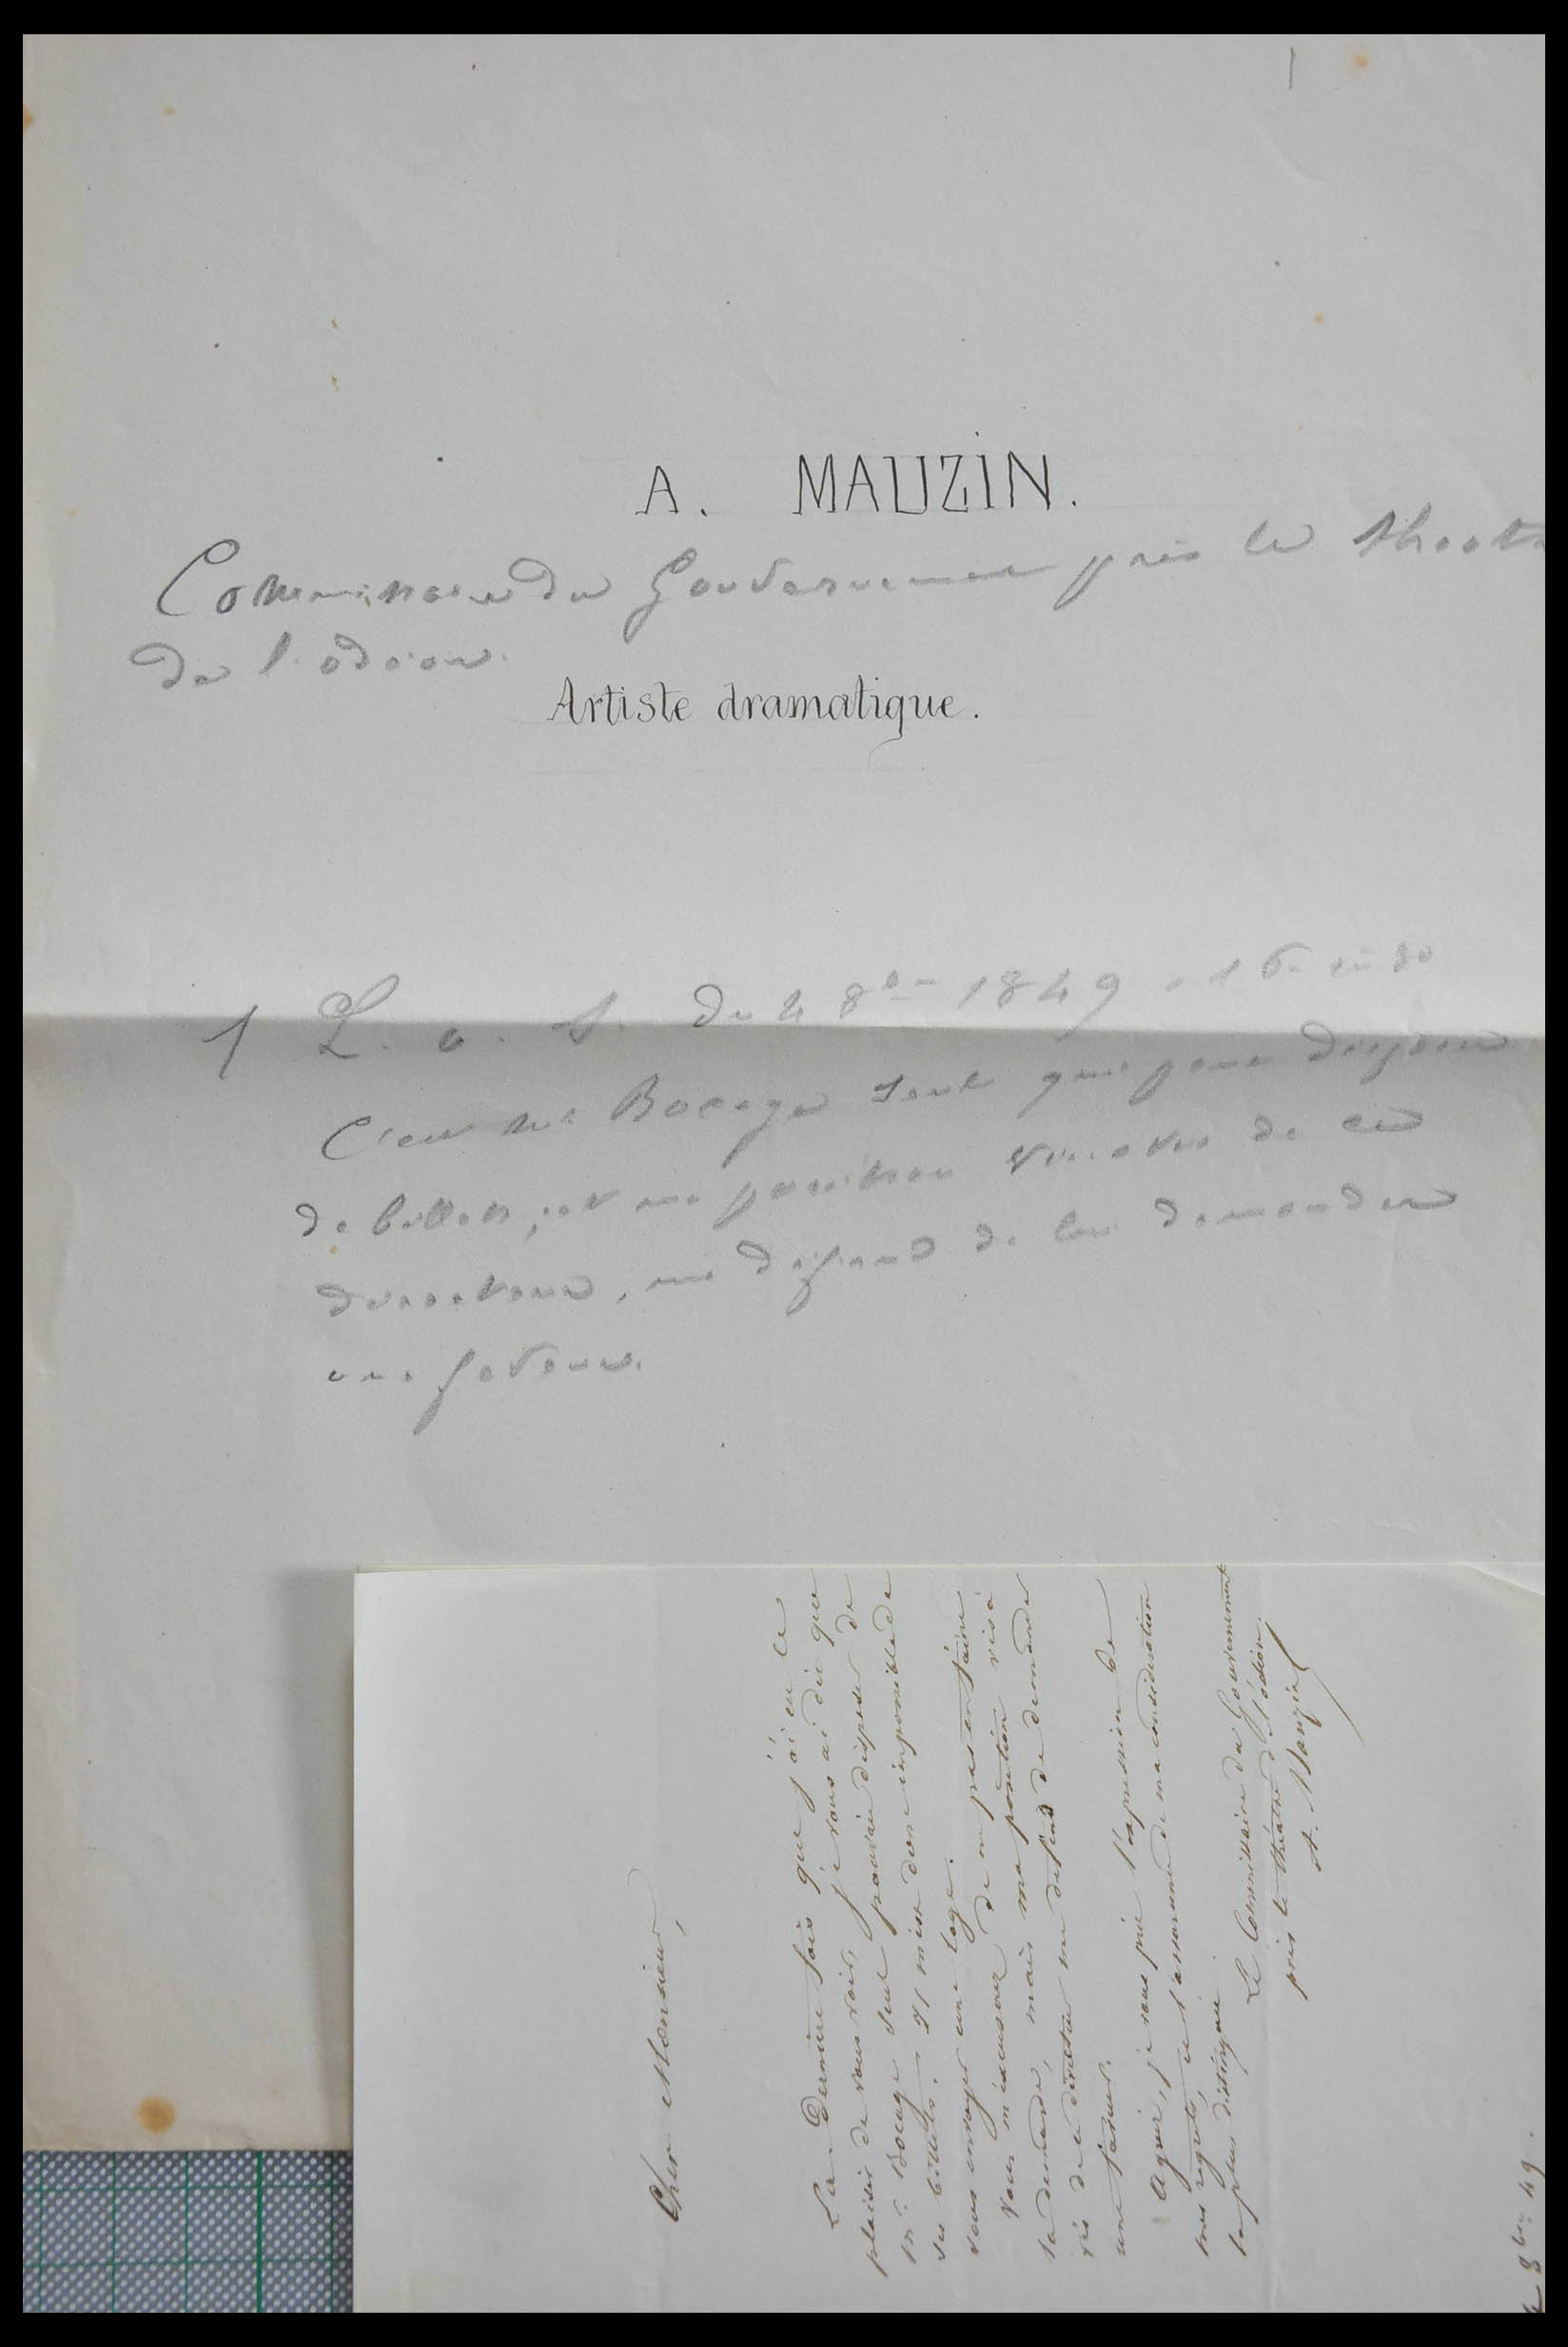 A. MAUZIN.
Commissaire du Gouvernement près le théatre
de l'odéon.
Artiste dramatique.
1 L. a. S. du 4 8bre 1849, 1 p. in 8o
C'est Mr Bocage seul qui peut disposer
de billets, et ma position vis à vis de ce
directeur, me défend de lui demander
une faveur.
Cher Monsieur,
La dernière fois que j'ai eu le
plaisir de vous voir, je vous ai dit que
Mr Bocage seul pouvait disposer de
ses billets. Il m'est donc impossible de
vous envoyer une loge.
Vous m'excuserez de ne pas en faire
la demande, mais ma position vis à
vis de ce directeur me défend de demander
une faveur.
Agréez, je vous prie l'expression de
mes regrets, et l'assurance de ma considération
la plus distinguée
Le Commissaire du Gouvernement
près le théâtre de l'odéon.
A. Mauzin
4 8bre 49.